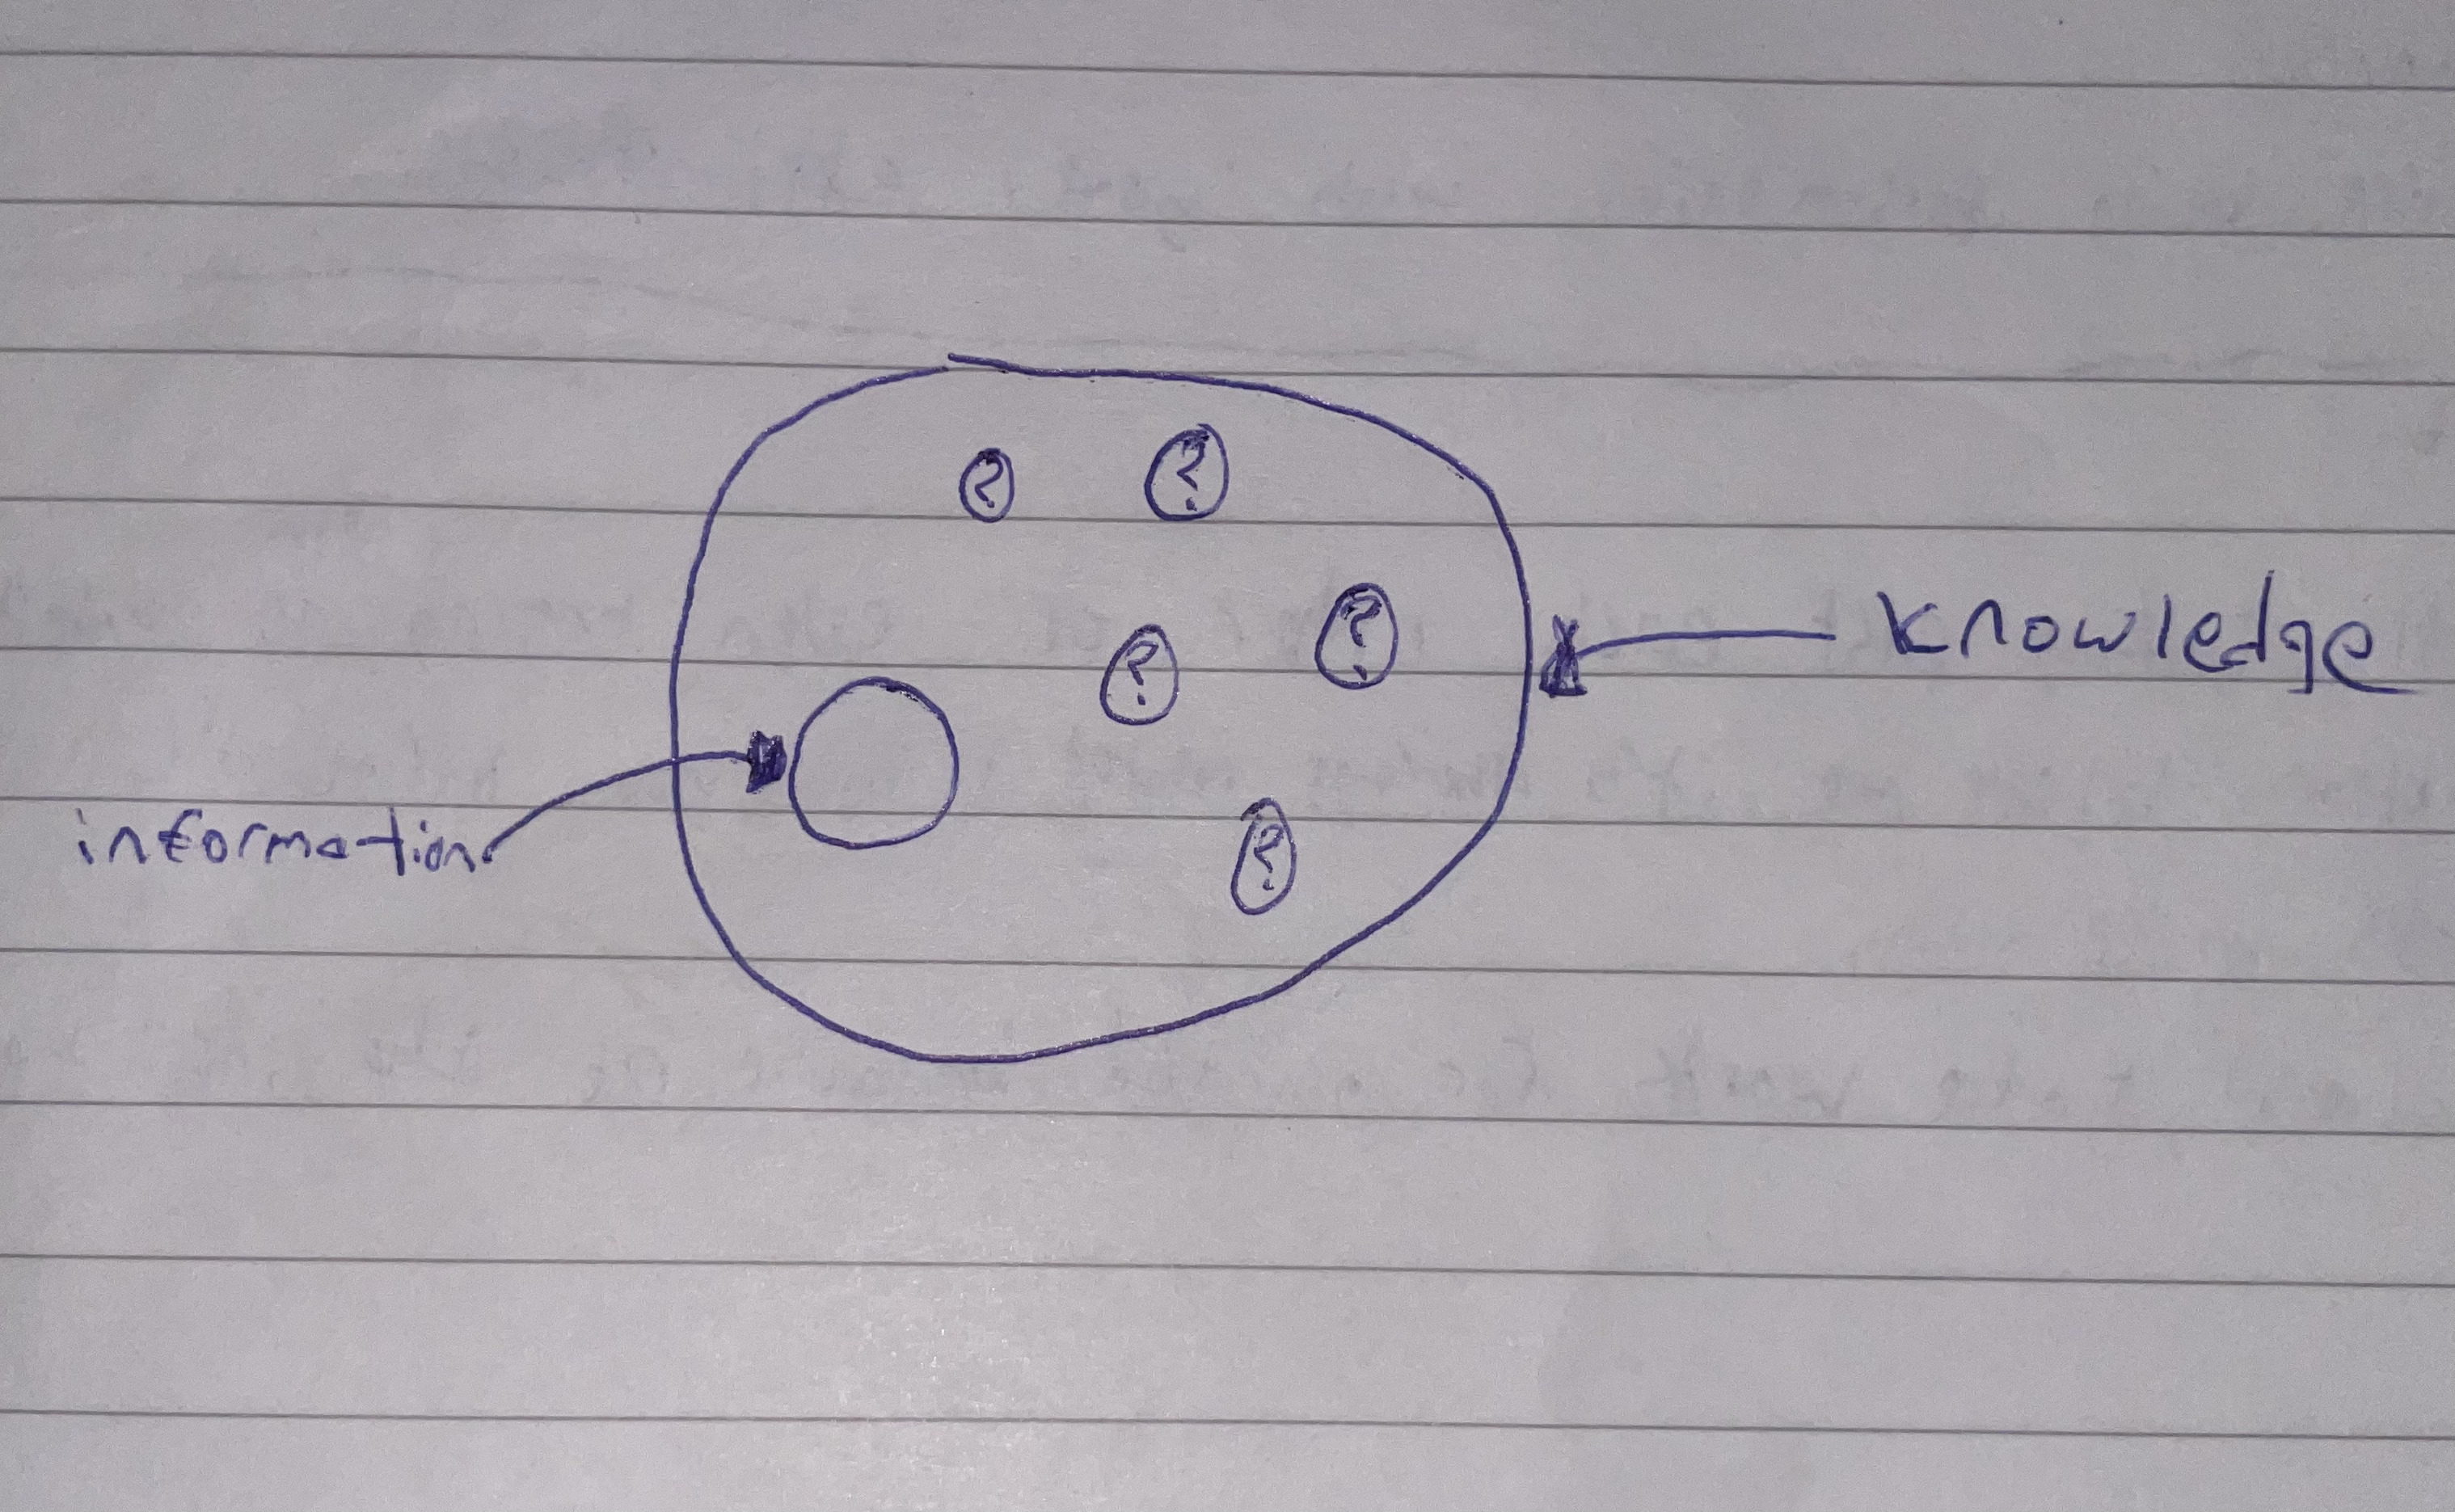 ?
?
?
?
knowledge
information
?